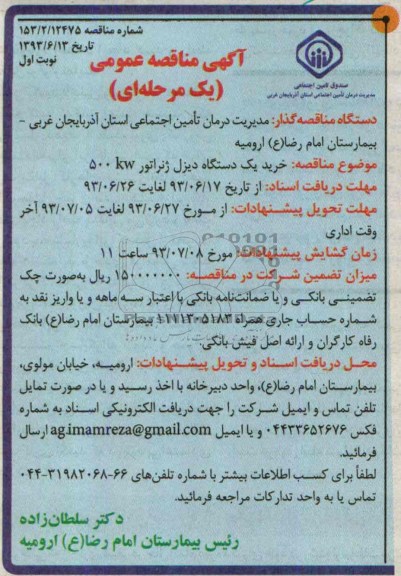 شماره مناقصه ۱۵۳/۲/۱۲۴۷۵
تاریخ ۱۳۹۳/۶/۱۳
نوبت اول
آگهی مناقصه عمومی
(یک مرحله‌ای)
صندوق تامین اجتماعی
مدیریت درمان تأمین اجتماعی استان آذربایجان غربی
دستگاه مناقصه‌گذار: مدیریت درمان تأمین اجتماعی استان آذربایجان غربی -
بیمارستان امام رضا(ع) ارومیه
موضوع مناقصه: خرید یک دستگاه دیزل ژنراتور ۵۰۰ kw
مهلت دریافت اسناد: از تاریخ ۹۳/۰۶/۱۷ لغایت ۹۳/۰۶/۲۶
مهلت تحویل پیشنهادات: از مورخ ۹۳/۰۶/۲۷ لغایت ۹۳/۰۷/۰۵ آخر
وقت اداری
زمان گشایش پیشنهادات: مورخ ۹۳/۰۷/۰۸ ساعت ۱۱
میزان تضمین شرکت در مناقصه: ۱۵۰۰۰۰۰۰۰ ریال به‌صورت چک
تضمینی بانکی و یا ضمانت‌نامه بانکی با اعتبار سه ماهه و یا واریز نقد به
شماره حساب جاری همراه ۱۱۱۱۳۰۵۱۸۳ بیمارستان امام رضا(ع) بانک
رفاه کارگران و ارائه اصل فیش بانکی.
محل دریافت اسناد و تحویل پیشنهادات: ارومیه، خیابان مولوی،
بیمارستان امام رضا(ع)، واحد دبیرخانه با اخذ رسید و یا در صورت تمایل
تلفن تماس و ایمیل شرکت را جهت دریافت الکترونیکی اسناد به شماره
فکس ۰۴۴۳۳۶۵۲۶۷۶ و یا ایمیل ag.imamreza@gmail.com ارسال
فرمائید.
لطفاً برای کسب اطلاعات بیشتر با شماره تلفن‌های ۶۶-۳۱۹۸۲۰۶۸-۰۴۴
تماس یا به واحد تدارکات مراجعه فرمائید.
دکتر سلطان‌زاده
رئیس بیمارستان امام رضا(ع) ارومیه